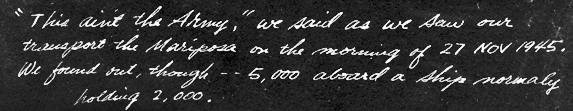 "This ain't the Army," we said as we saw our
transport the Mariposa on the morning of 27 NOV 1945.
We found out, though -- 5,000 aboard a ship normaly
holding 2,000.